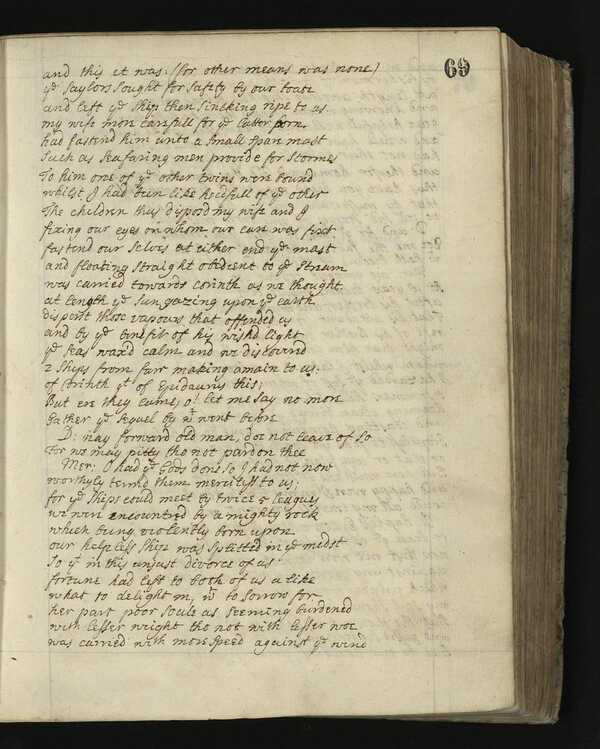 69
and this it was: (for other means was none)
ye Saylors sought for safety by our boate
and left ye ship then sinking ripe to us
my wife more carefull for ye latter born
had fastend him unto a small span mast
such as seafaring men provide for stormes
To him one of ye other twins were bound
whilst I had been like heedfull of ye other
The children thus disposd my wife and I
fixing our eyes on whom our care was fixt
fastend our selves at either end ye mast
and floating straight obedient to ye stream
was carried towards Corinth as we thought
at length ye sun gazing upon ye earth
disperst those vapours that offended us
and by ye benefit of his wishd light
ye seas waxd calm and we discoverd
2 ships from farr making amain to us:
of Corinth yt of Epidaurus this;
But ere they came, o! let me say no more
Gather ye sequel by wt went before
D: nay forward old man, doe not leave of so
for we may pitty tho not pardon thee
Mer: O had ye Gods done so I had not now
worthyly termd them mercilesse to us;
for ye ships could meet by twice 5 leagues
we were encountred by a mighty rock
which being violently born upon
our helplesse ship was splitted in ye midst
So yt in this unjust divorce of us
fortune had left to both of us alike
what to delight in, wt to sorrow for
her part poor soule as seeming burdened
with lesser weight tho not with lesser woe
was carried with more speed against ye wind